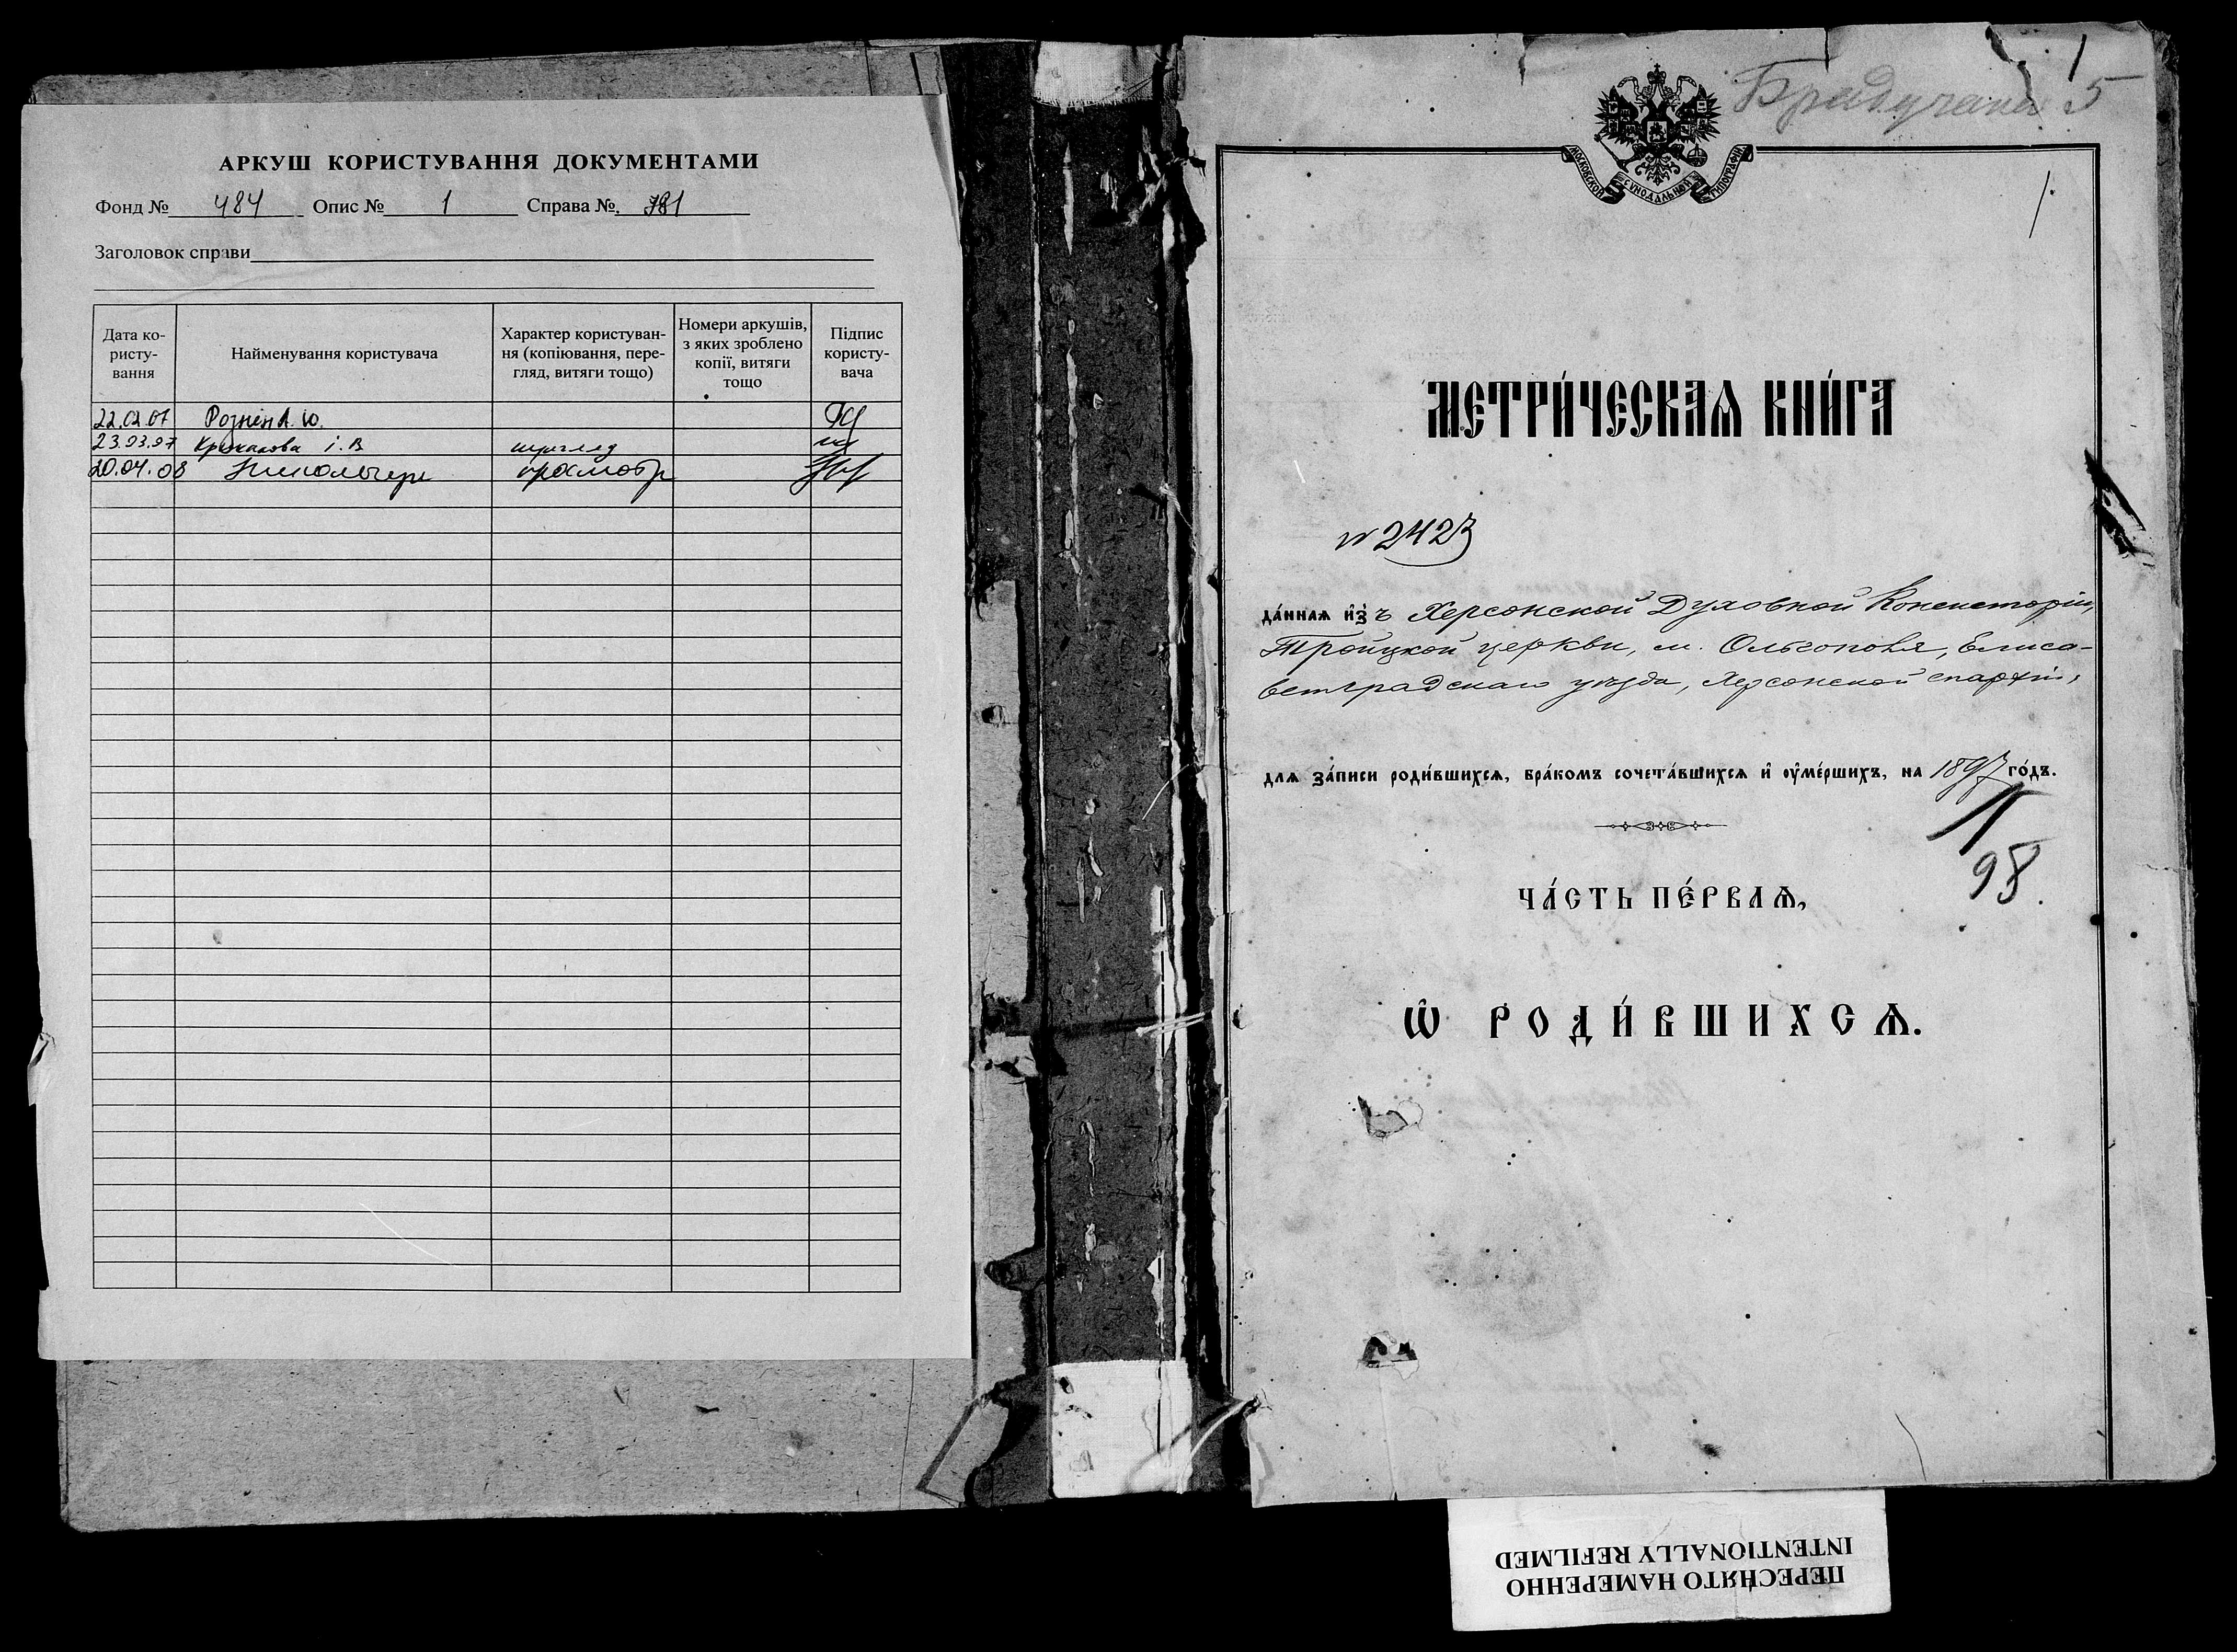 АРКУШ КОРИСТУВАННЯ ДОКУМЕНТАМИ
Фонд № 484 Опис № 1 Справа № 781
Заголовок справи
Дата ко-
ристу-
вання
Найменування користувача
Характер користуван-
ня (копіювання, пере-
гляд, витяги тощо)
Номери аркушів,
з яких зроблено
копії, витяги
тощо
Підпис
користу-
вача
22.02.07
23.03.97 і. В
20.04.08 просмотр
1
5
МОСКОВСКОЙ СѴНОДАЛЬНОЙ ТИПОГРАФІИ
1.
МЕТРИ́ЧЕСКАѦ КНИ́ГА
№ 2423
да́ннаѧ и҆зъ Херсонской Духовной Консисторіи,
Тройцкой церкви, м. Ольгополя, Елиса-
ветградскаго уѣзда, Херсонской епархіи,
длѧ за́писи роди́вшихсѧ, бра́комъ сочета́вшихсѧ и҆ оу҆ме́ршихъ, на 1897 го́дъ.
98.
ЧА́СТЬ ПЕ́РВАѦ,
Ѡ҆ РОДИ́ВШИХСѦ.
ПЕРЕСНЯТО НАМЕРЕННО
INTENTIONALLY REFILMED